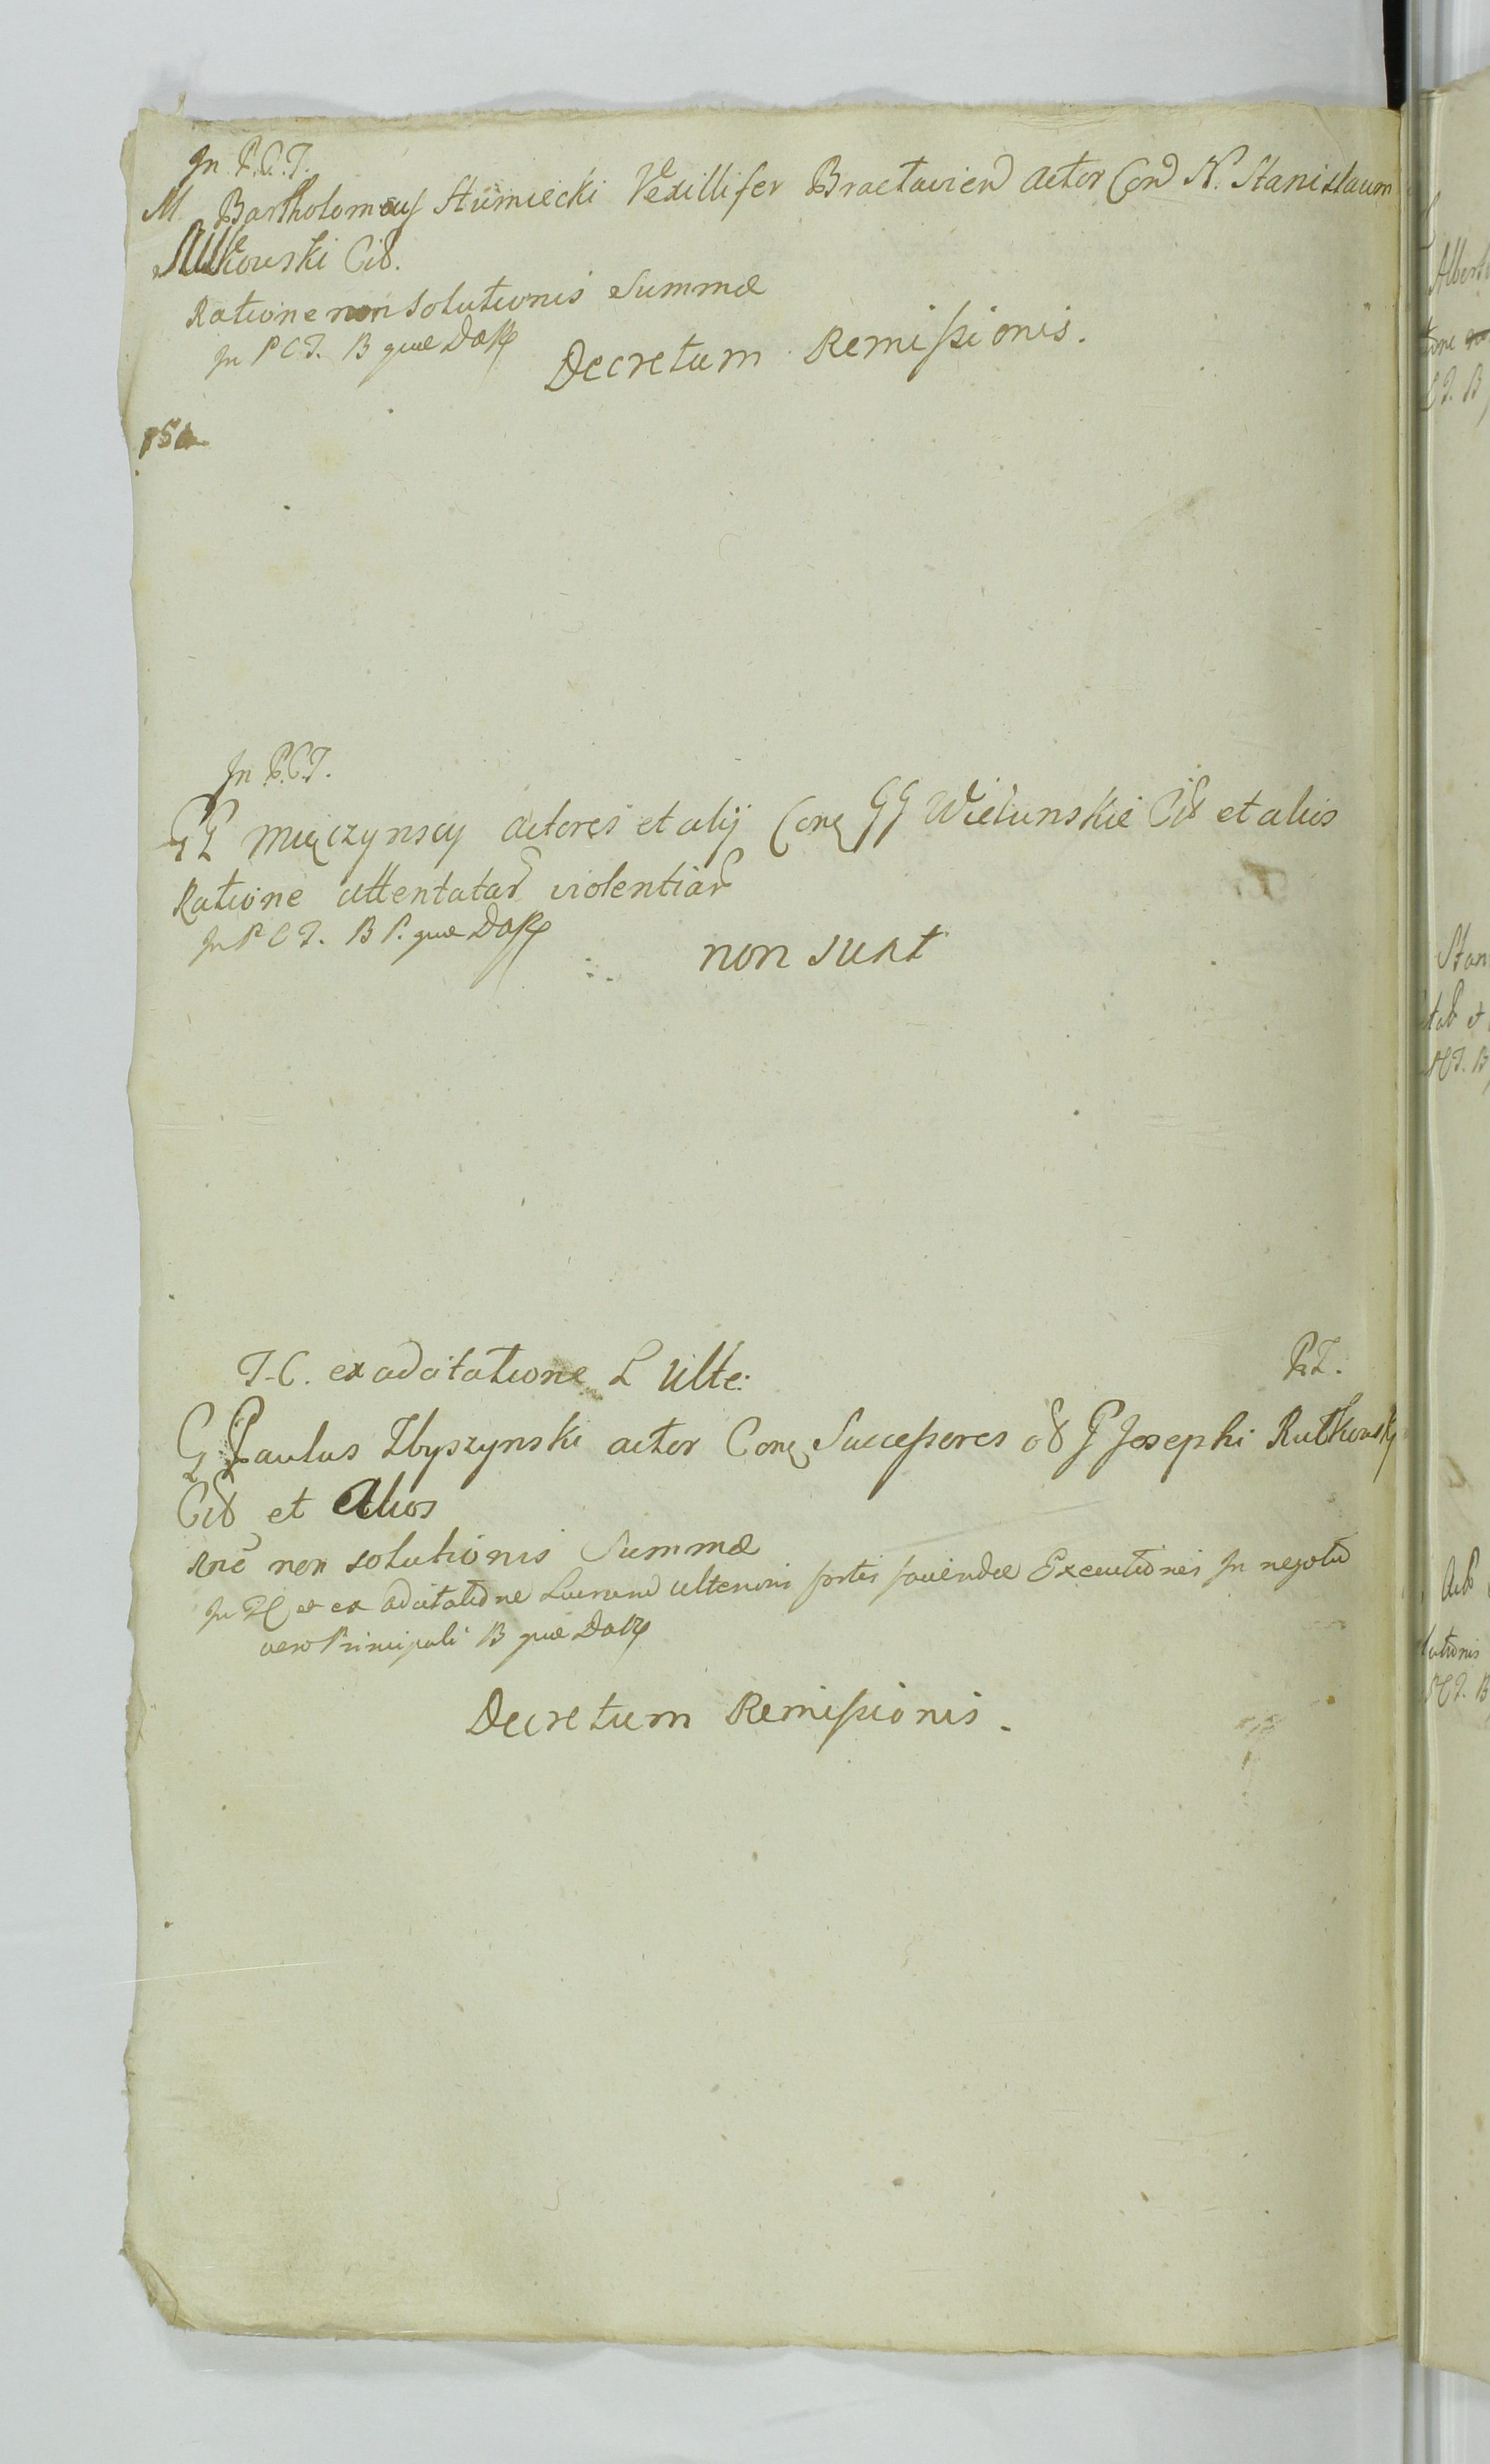 In P.C.T.
M. Bartholomeus Stumiecki Vexillifer Bractavien actor Con N. Stanislaum
Milkowski Cit.
Ratione non solutionis Summæ
In P C T. B quæ
Decretum Remissionis.
In P.C.T.
GG Mięczynscy actores et alij Con GG Wielunskie Cit et alios
Ratione attentatar violentiar
In P C T. B P. quæ
non sunt
T.C. ex adcitatione L Ulte:
P.T.
G Paulus Zbyszynski actor Con Successores ol G Josephi Rutkowsky
Cit et Alios
Rne non solutionis Summæ
In TC et ex adcitatione ulterioris fortis fovendæ Executionis In negotio
vero Principali B quæ
Decretum Remissionis.